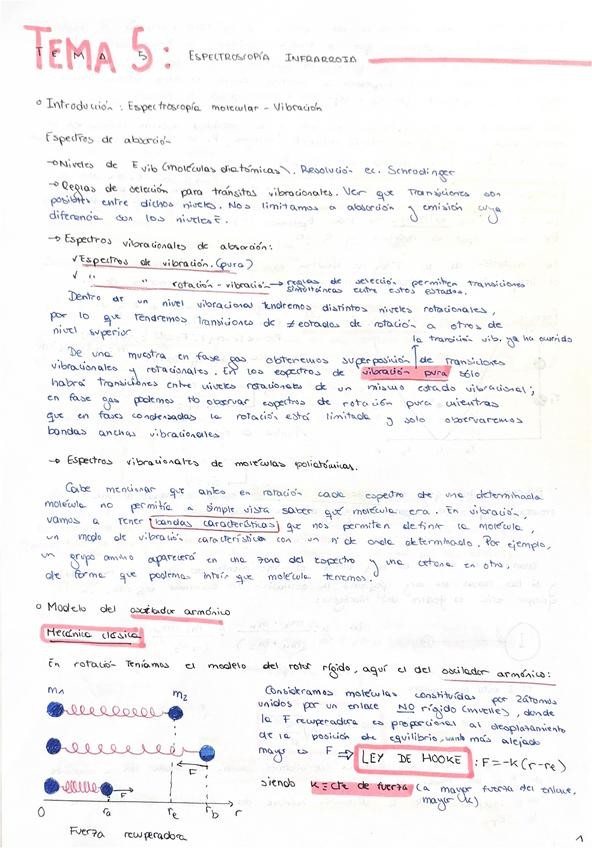 TEMA 5: ESPECTROSCOPÍA INFRARROJA
TEMA 5
◦ Introducción: Espectroscopía molecular - Vibración
Espectros de absorción
→ Niveles de E vib (moléculas diatómicas). Resolución ec. Schrodinger
→ Reglas de selección para tránsitos vibracionales. Ver que transiciones son
posibles entre dichos niveles. Nos limitamos a absorción y emisión cuya
diferencia con los niveles E.
→ Espectros vibracionales de absorción:
√ Espectros de vibración (pura)
√ " " rotación - vibración → reglas de selección permiten transiciones
simultáneas entre estos estados.
Dentro de un nivel vibracional tendremos distintos niveles rotacionales,
por lo que tendremos transiciones de ≠ estados de rotación a otros de
nivel superior
la transición vib. ya ha ocurrido
De una muestra en fase gas obtenemos superposición de transiciones
vibracionales y rotacionales. En los espectros de vibración pura sólo
habrá transiciones entre niveles rotacionales de un mismo estado vibracional;
en fase gas podemos no observar espectros de rotación pura mientras
que en fases condensadas la rotación está limitada y solo observaremos
bandas anchas vibracionales
→ Espectros vibracionales de moléculas poliatómicas.
Cabe mencionar que antes en rotación cada espectro de una determinada
molécula no permitía a simple vista saber que molécula era. En vibración,
vamos a tener bandas características que nos permiten definir la molécula,
un modo de vibración característica con un nº de onda determinado. Por ejemplo,
un grupo amino aparecerá en una zona del espectro y una cetona en otra,
de forma que podemos intuir que molécula tenemos.
◦ Modelo del oscilador armónico
Mecánica clásica
En rotación teníamos el modelo del rotor rígido, aquí el del oscilador armónico:
m₁ m₂
Consideramos moléculas constituidas por 2 átomos
unidos por un enlace NO rígido (muelles), donde
la F recuperadora es proporcional al desplazamiento
de la posición de equilibrio, más alejado
mayor es F ⇒ LEY DE HOOKE: F = -k(r-re)
siendo k = cte de fuerza (a mayor fuerza del enlace,
mayor k)
F
F
0 ra re rb r
Fuerza recuperadora
1